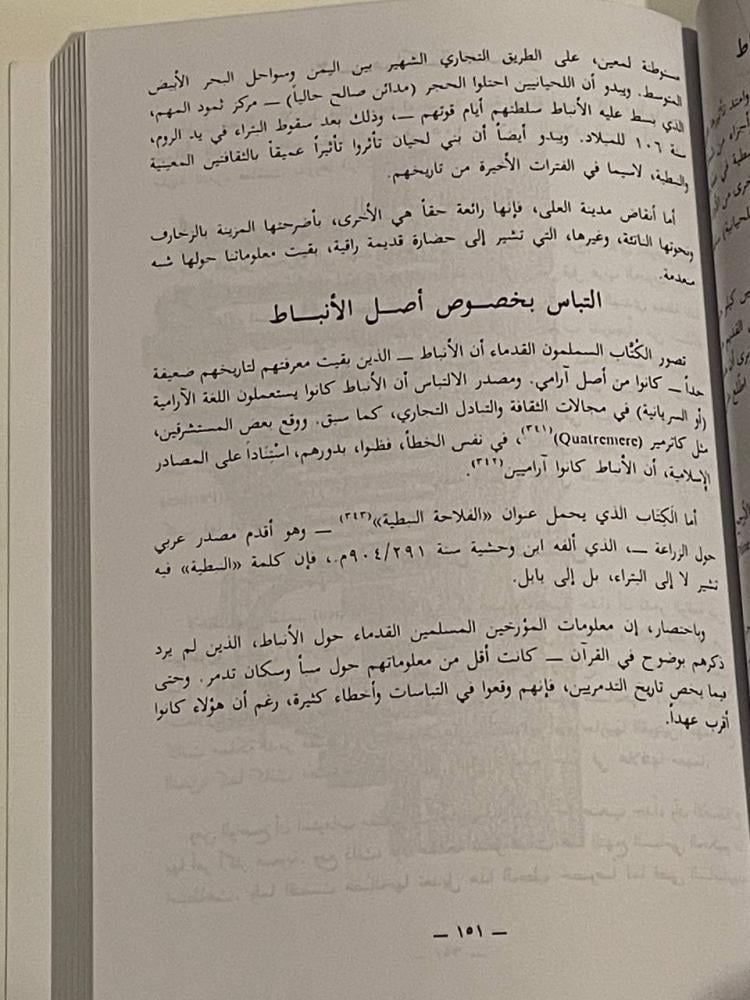 مستوطنة لمعين، على الطريق التجاري الشهير بين اليمن وسواحل البحر الأبيض
المتوسط. ويبدو أن اللحيانيين احتلوا الحجر (مدائن صالح حالياً) — مركز ثمود المهم،
الذي بسط عليه الأنباط سلطتهم أيام قوتهم —، وذلك بعد سقوط البتراء في يد الروم،
سنة ١٠٦ للميلاد. ويبدو أيضاً أن بني لحيان تأثروا تأثيراً عميقاً بالثقافتين المعينية
والنبطية، لاسيما في الفترات الأخيرة من تاريخهم.
أما أنقاض مدينة العلى، فإنها رائعة حقاً هي الأخرى، بأضرحتها المزينة بالزخارف
ونحوتها الناتئة، وغيرها، التي تشير إلى حضارة قديمة راقية، بقيت معلوماتنا حولها شبه
منعدمة.
التباس بخصوص أصل الأنباط
تصور الكُتّاب المسلمون القدماء أن الأنباط — الذين بقيت معرفتهم لتاريخهم ضعيفة
جداً — كانوا من أصل آرامي. ومصدر الالتباس أن الأنباط كانوا يستعملون اللغة الآرامية
(أو السريانية) في مجالات الثقافة والتبادل التجاري، كما سبق. ووقع بعض المستشرقين،
مثل كاترمير (Quatremere)(٣٤١)، في نفس الخطأ، فظنوا، بدورهم، اسْتِناداً على المصادر
الإسلامية، أن الأنباط كانوا آراميين(٣٤٢).
أما الكِتَاب الذي يحمل عنوان «الفلاحة النبطية»(٣٤٣) — وهو أقدم مصدر عربي
حول الزراعة —، الذي ألفه ابن وحشية سنة ٩٠٤/٢٩١م.، فإن كلمة «النبطية» فيه
تشير لا إلى البتراء، بل إلى بابل.
وباختصار، إن معلومات المؤرخين المسلمين القدماء حول الأنباط، الذين لم يرد
ذكرهم بوضوح في القرآن — كانت أقل من معلوماتهم حول سبأ وسكان تدمر. وحتى
فيما يخص تاريخ التدمريين، فإنهم وقعوا في التباسات وأخطاء كثيرة، رغم أن هؤلاء كانوا
أقرب عهداً.
— ١٥١ —